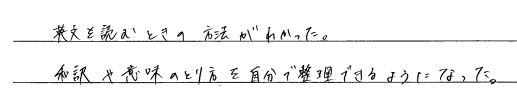 英文を読むときの方法がわかった。
和訳や意味のとり方を自分で整理できるようになった。